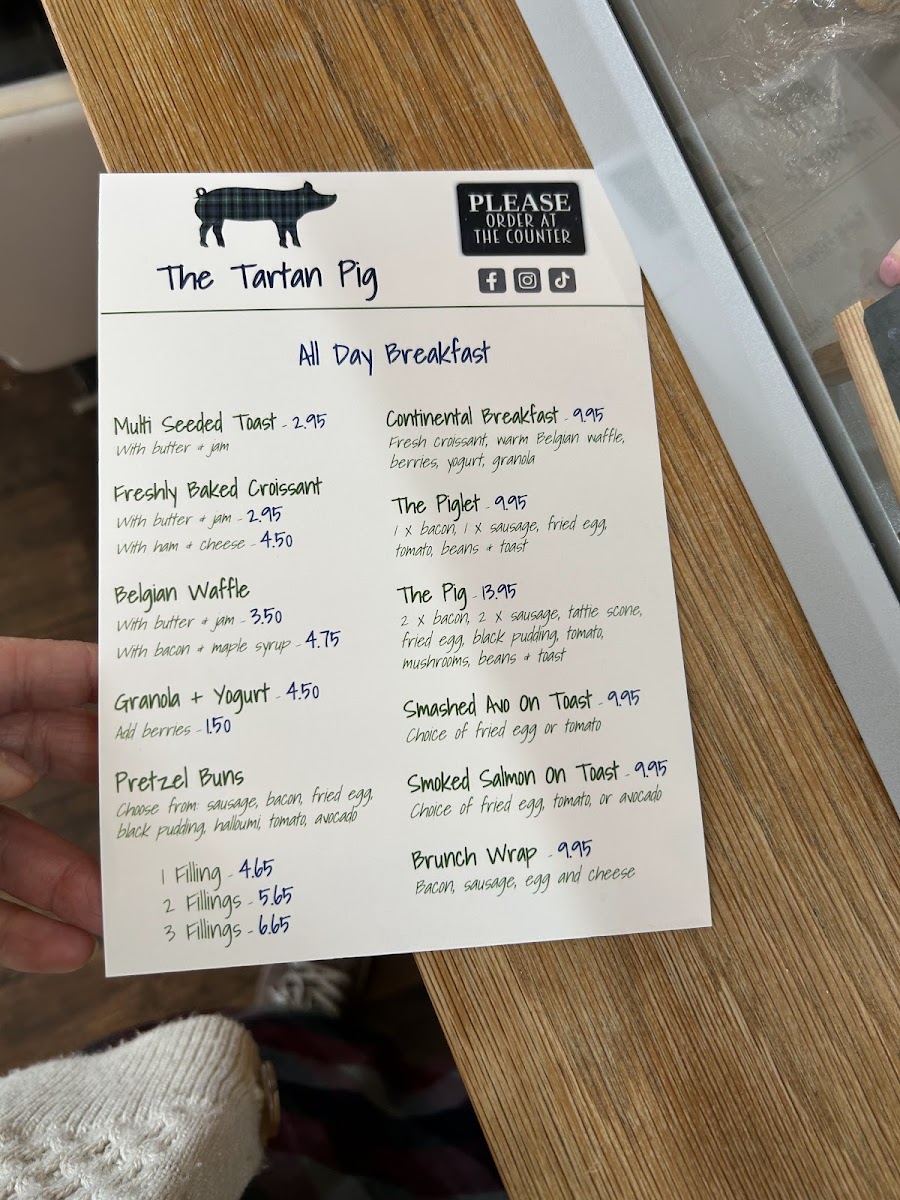 The Tartan Pig
PLEASE
ORDER AT
THE COUNTER
All Day Breakfast
Multi Seeded Toast - 2.95
With butter + jam
Freshly Baked Croissant
With butter + jam - 2.95
With ham + cheese - 4.50
Belgian Waffle
With butter + jam - 3.50
With bacon + maple syrup - 4.75
Granola + Yogurt - 4.50
Add berries - 1.50
Pretzel Buns
Choose from: sausage, bacon, fried egg,
black pudding, halloumi, tomato, avocado
1 Filling - 4.65
2 Fillings - 5.65
3 Fillings - 6.65
Continental Breakfast - 9.95
Fresh croissant, warm Belgian waffle,
berries, yogurt, granola
The Piglet - 9.95
1 x bacon, 1 x sausage, fried egg,
tomato, beans + toast
The Pig - 13.95
2 x bacon, 2 x sausage, tattie scone,
fried egg, black pudding, tomato,
mushrooms, beans + toast
Smashed Avo On Toast - 9.95
Choice of fried egg or tomato
Smoked Salmon On Toast - 9.95
Choice of fried egg, tomato, or avocado
Brunch Wrap - 9.95
Bacon, sausage, egg and cheese